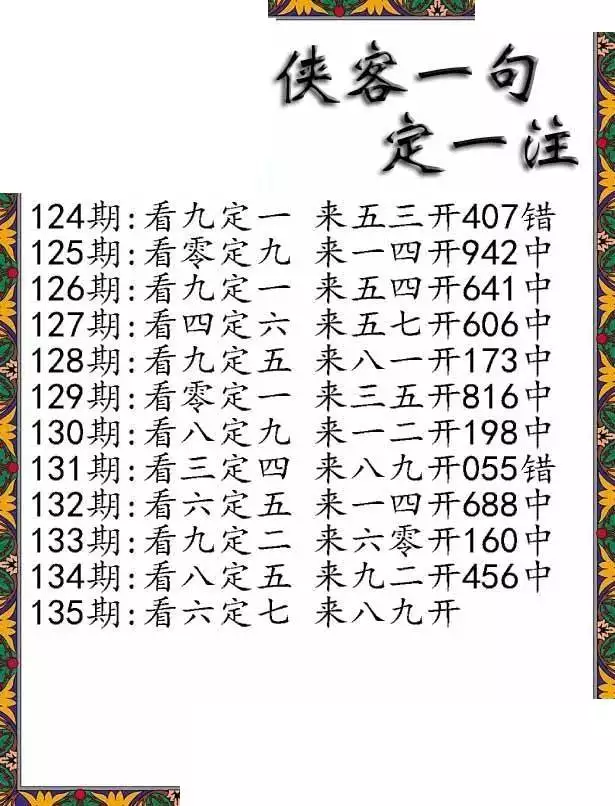 侠客一句
定一注
124期:看九定一 来五三开407错
125期:看零定九 来一四开942中
126期:看九定一 来五四开641中
127期:看四定六 来五七开606中
128期:看九定五 来八一开173中
129期:看零定一 来三五开816中
130期:看八定九 来一二开198中
131期:看三定四 来八九开055错
132期:看六定五 来一四开688中
133期:看九定二 来六零开160中
134期:看八定五 来九二开456中
135期:看六定七 来八九开